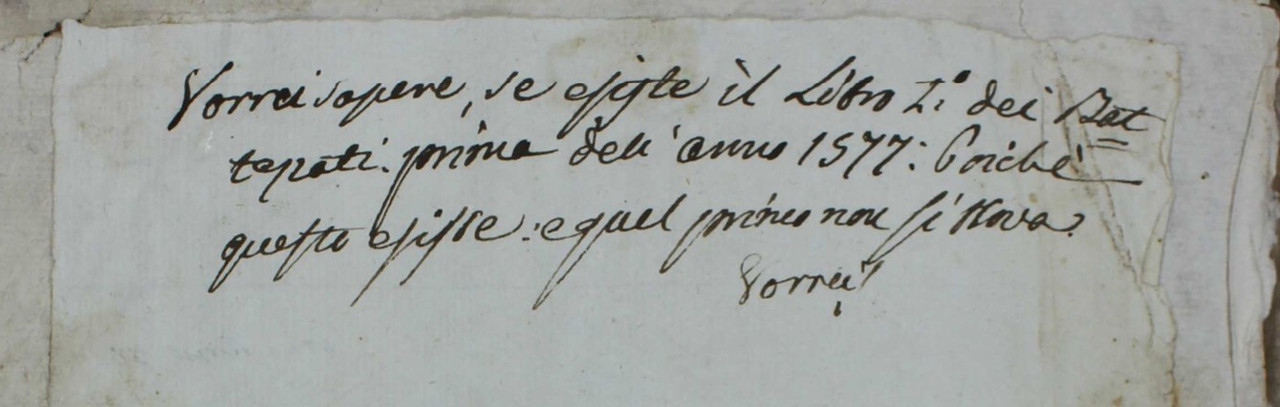 Vorrei sapere, se esiste il Libro I.º dei Bat=
tezati. prima dell' anno 1577: Poichè
questo esiste: e quel primo non si trova.
Vorrei